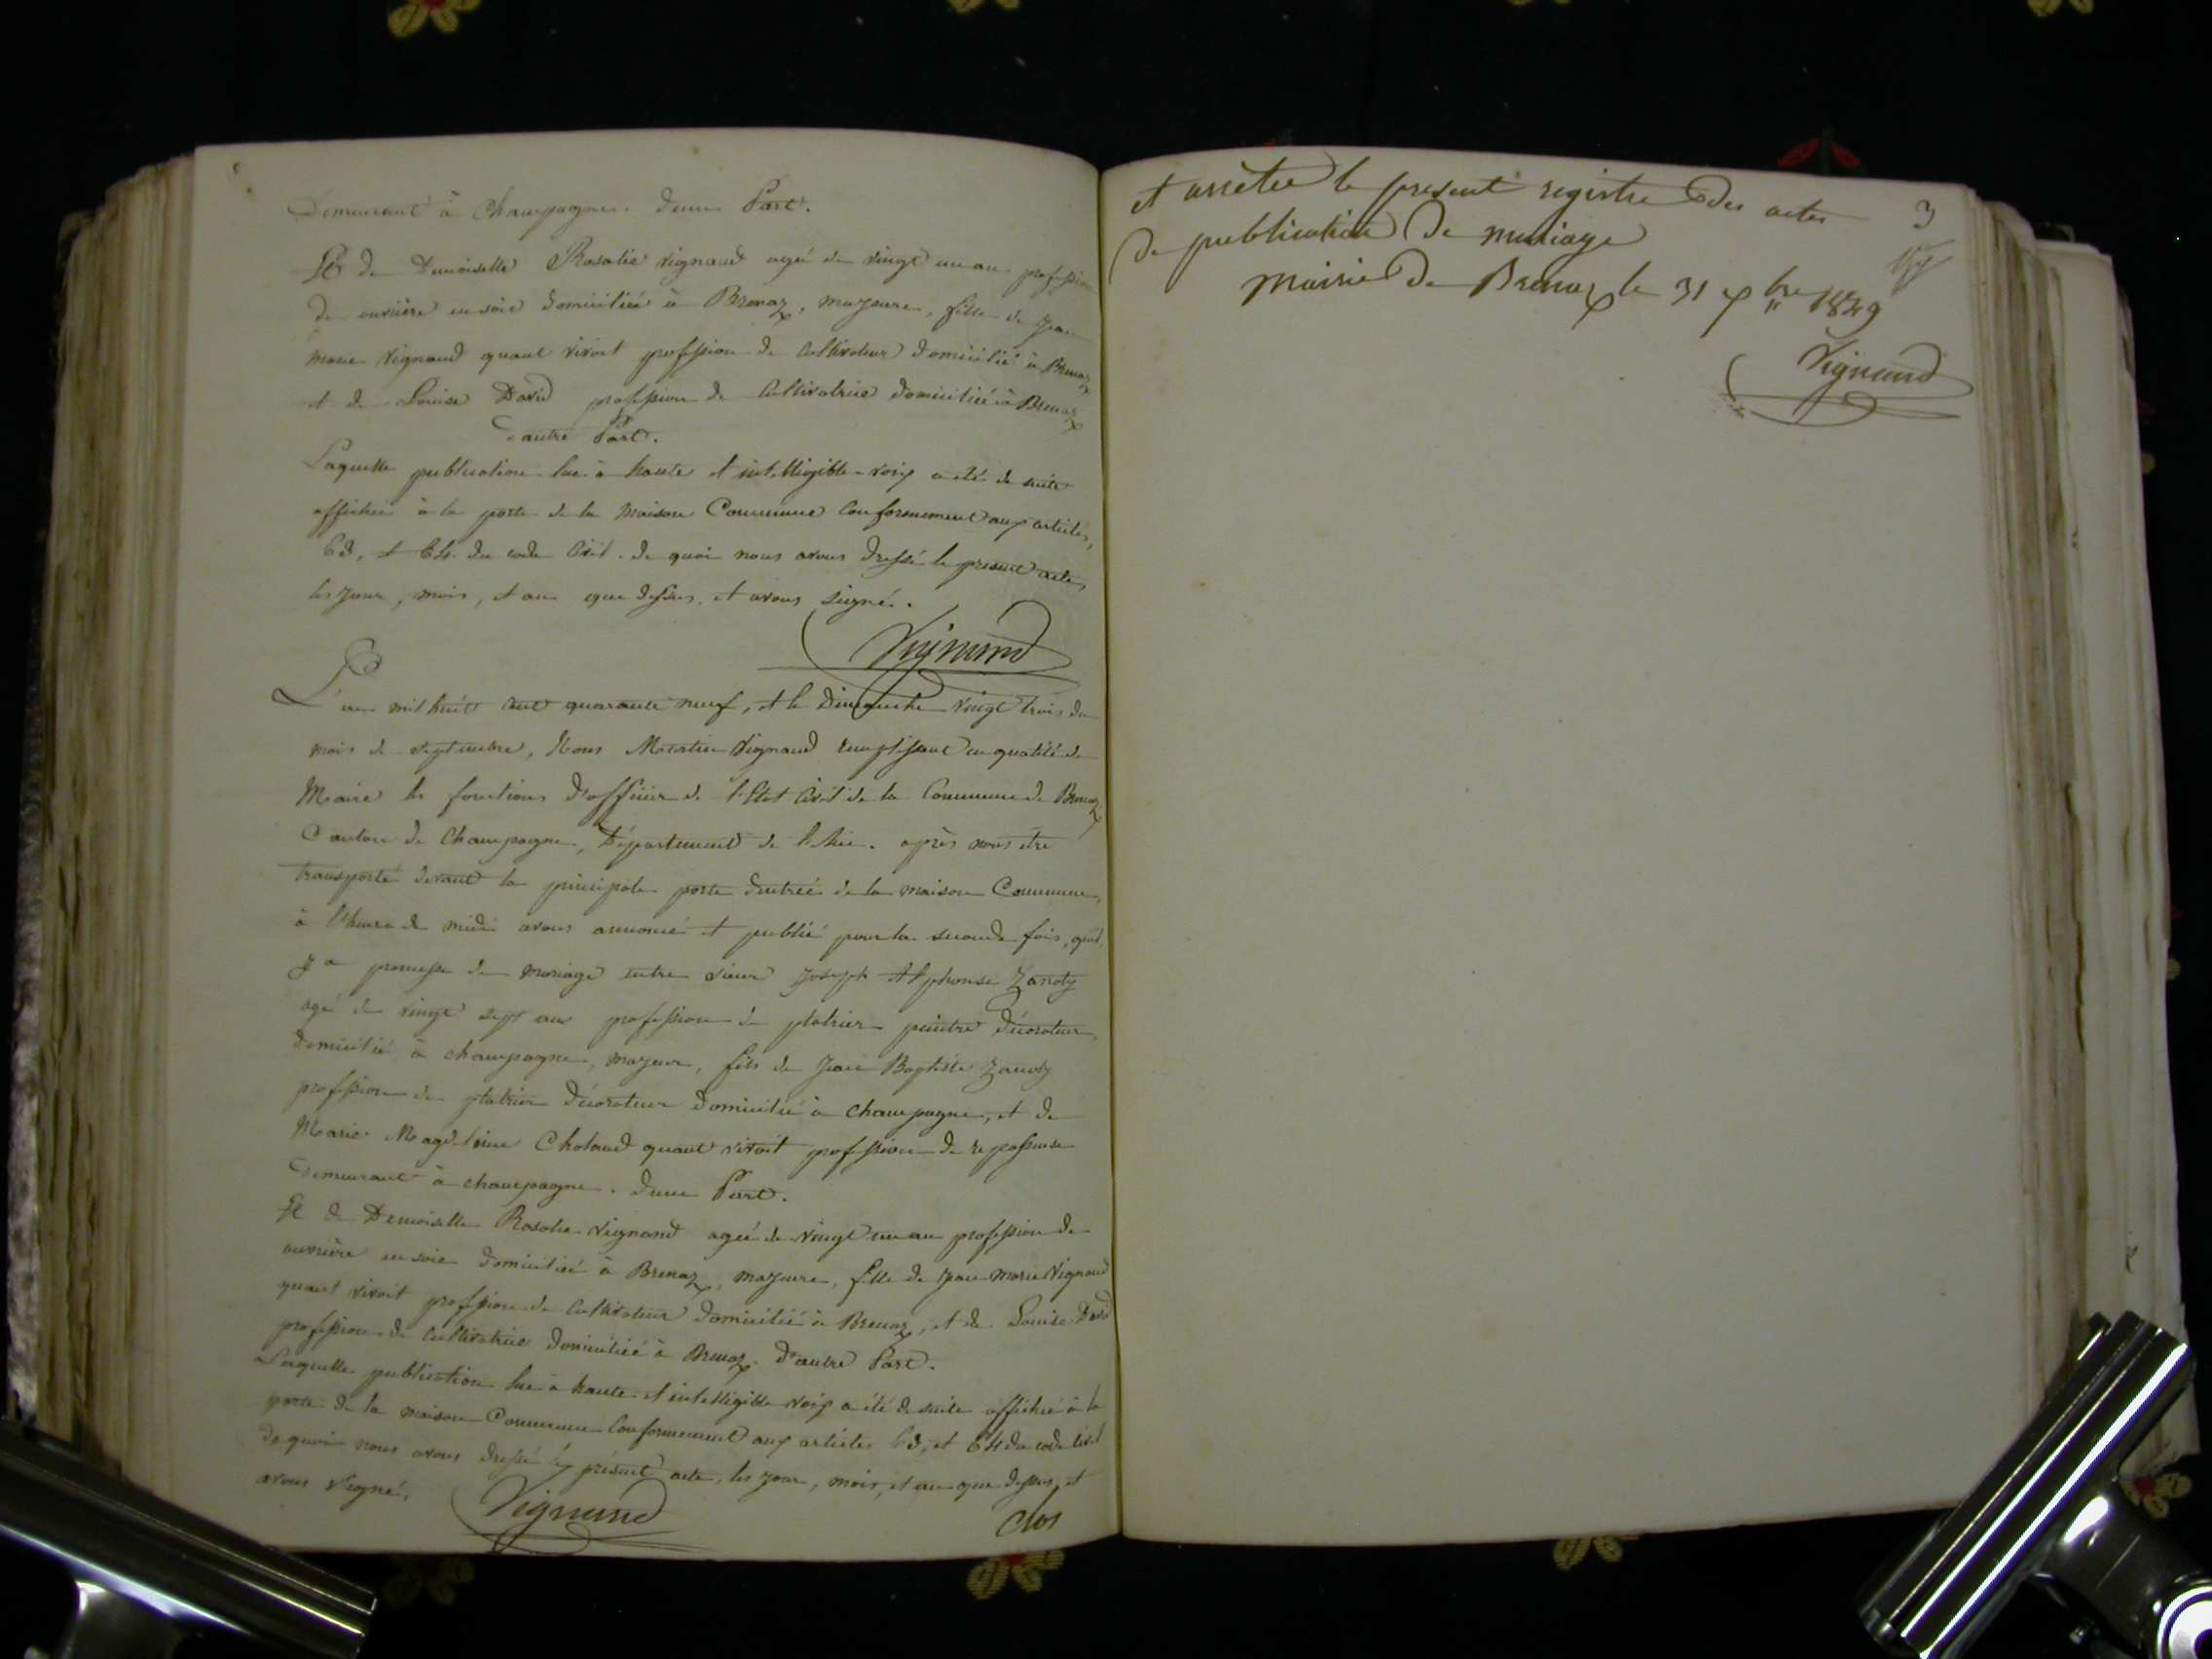 Demeurant à Champagne. dune Part.
Et de Demoiselle Rosalie Vignand agée de vingt un ans profession
de ouvrière en soie domiciliée à Brenaz, majeure, fille de Jean
Marie Vignand quant vivoit profession de Cultivateur domicilié à Brenaz
et de Louise David profession de Cultivatrice domiciliée à Brenaz
dautre Part.
Laquelle publication lue à haute et intelligible voix a été de suite
affichée à la porte de la Maison Commune Conformement aux articles,
63, et 64. du code Civil. de quoi nous avons dressé le présent acte,
les jour, mois, et an que dessus. et avons signé.
Vignand
L'an mil huit cent quarante neuf, et le Dimanche vingt trois du
mois de septembre, Nous Martin Vignand remplissant en qualité de
Maire les fonctions d'officier de l'Etat Civil de la Commune de Brenaz
Canton de Champagne, Département de l'Ain. après nous etre
transporté devant la principale porte dentrée de la maison Commune,
à l'heure de midi avons annoncé et publié pour la seconde fois, qu'il
y a promesse de mariage entre sieur Joseph Alphonse Zanoty
agé de vingt sept ans profession de platrier peintre décorateur,
domicilié à champagne, majeur, fils de Jean Baptiste Zanoty
profession de platrier décorateur domicilié à champagne, et de
Marie Magdeleine Choland quant vivoit profession de repasseuse
Demeurant à champagne. dune Part.
Et de Demoiselle Rosalie Vignand agée de vingt un an profession de
ouvrière en soie domiciliée à Brenaz, majeure, fille de Jean Marie Vignand
quant vivoit profession de Cultivateur domicilié à Brenaz, et de Louise David
profession de Cultivatrice domiciliée à Brenaz. d'autre Part.
Laquelle publication lue à haute et intelligible voix a été de suite affichée à la
porte de la maison Commune Conformement aux articles 63, et 64 du code Civil
de quoi nous avons dressé le présent acte, les jour, mois, et an que dessus, et
avons signé,
Vignand
Clos
et arretée le present registre des actes
de publication de mariage
3
Mairie de Brenaz le 31 xbre 1849
Vignand